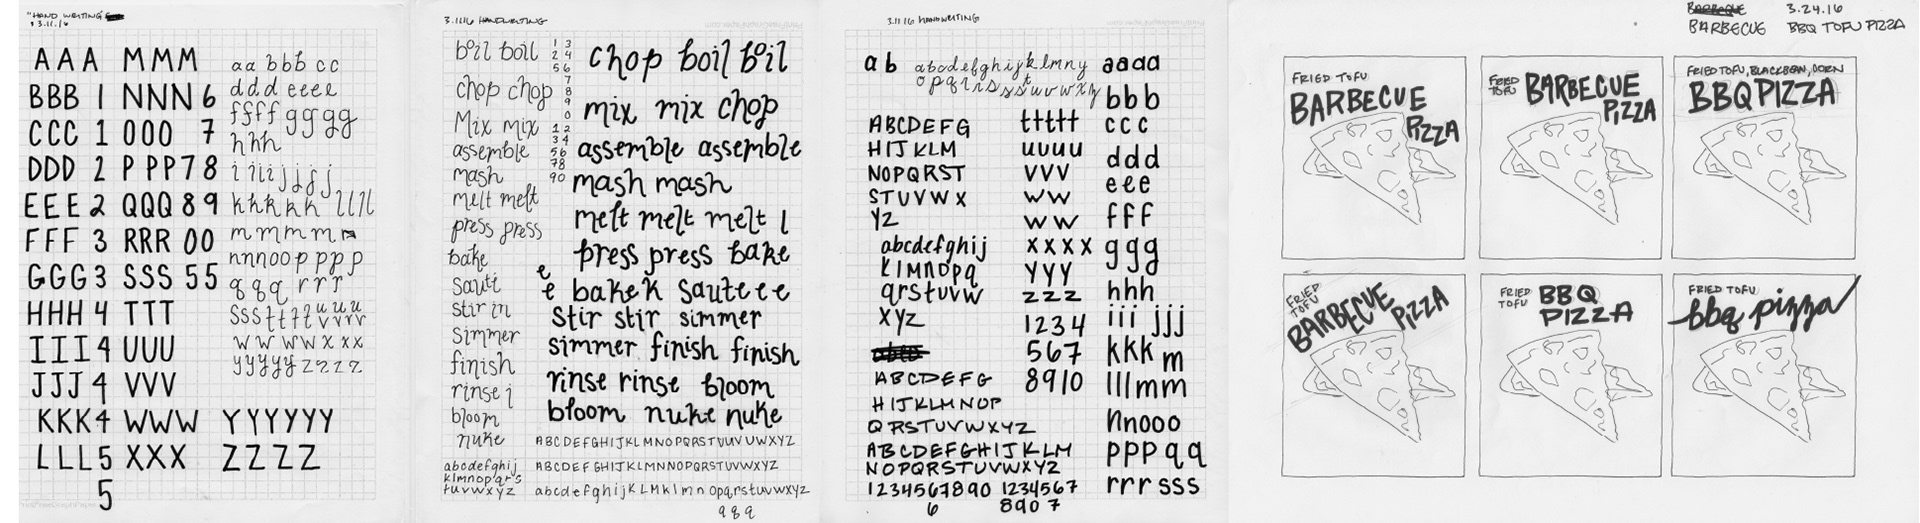 "HAND WRITING"
3.11.16
AAA MMM
BBB 1 NNN 6
CCC 1 OOO 7
DDD 2 PPP 7 8
EEE 2 QQQ 8 9
FFF 3 RRR 00
GGG 3 SSS 55
HHH 4 TTT
III 4 UUU
JJJ 4 VVV
KKK 4 WWW YYYYYY
LLL 5 XXX ZZZZ
5
aa bbb cc
ddd eeee
ffff gggg
hhh
iiii jjjj
kkkkk llll
mmmmm
nnnoo pppp
qqq rrr
sss tttt uuu
vvvv
wwww xxx
yyyyy zzzz
3.11.16 HANDWRITING
boil boil
chop chop
Mix mix
assemble
mash
melt melt
press press
bake
Sauti
Stir in
Simmer
finish
rinse j
bloom
nuke
abcdefghij
klmnopqrs
tuvwxyz
1 3
2 4
5 6
7
8
9
0
1 2
3 4
5 6
7 8
9 0
chop boil boil
mix mix chop
assemble assemble
mash mash
melt melt melt l
press press bake
e
e bake k Sauteee
Stir stir simmer
simmer finish finish
rinse rinse bloom
bloom nuke nuke
ABCDEFGHIJKLMNOPQRSTUVUVWXYZ
ABCDEFGHIJKLMNNOPQRSTUVWXYZ
abcdefghijKLMklmn opqrstuvwxyz
q q q
3.11.16 HANDWRITING
a b
abcdefghijklmny
opqrrsssttuvwxy
ABCDEFG
HIJKLM
NOPQRST
STUVWX
YZ
abcdefghij
klmnopq
qrstuvw
xyz
ABCDEFG
HIJKLMNOP
QRSTUVWXYZ
ABCDEFGHIJKLM
NOPQRSTUVWXYZ
1234567890 1234567
6 890 7
ttttt
uuuu
vvv
ww
ww
xxxx
yyy
zzz
1234
567
8910
aaaa
bbb
ccc
ddd
eee
fff
ggg
hhh
iii jjj
kkk m
lllmm
nnooo
pppqq
rrrsss
BARBEQUE 3.24.16
BARBECUE BBQ TOFU PIZZA
FRIED TOFU
BARBECUE
PIZZA
FRIED
TOFU
BARBECUE
PIZZA
FRIED TOFU, BLACKBEAN, CORN
BBQ PIZZA
FRIED
TOFU
BARBECUE
PIZZA
FRIED
TOFU
BBQ
PIZZA
FRIED TOFU
bbq pizza